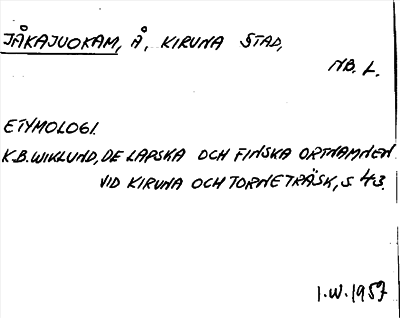 JÅKAJUOKAM, Å, KIRUNA STAD,
NB. L.
ETYMOLOGI.
K.B. WIKLUND, DE LAPSKA OCH FINSKA ORTNAMNEN
VID KIRUNA OCH TORNETRÄSK, S 43.
I.W. 1957